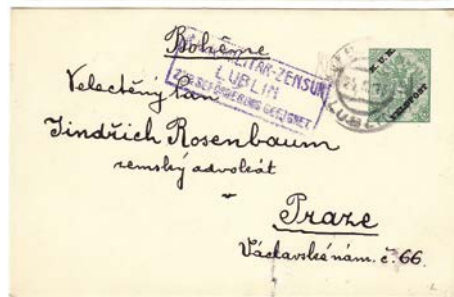 Bohème
MILITÄR-ZENSUR
LUBLIN
ZUR BEFÖRDERUNG GEEIGNET
K.U.K.
FELDPOST
Velectěný Pan
Jindřich Rosenbaum
zemský advokát
Praze
Václavské nám. č. 66.